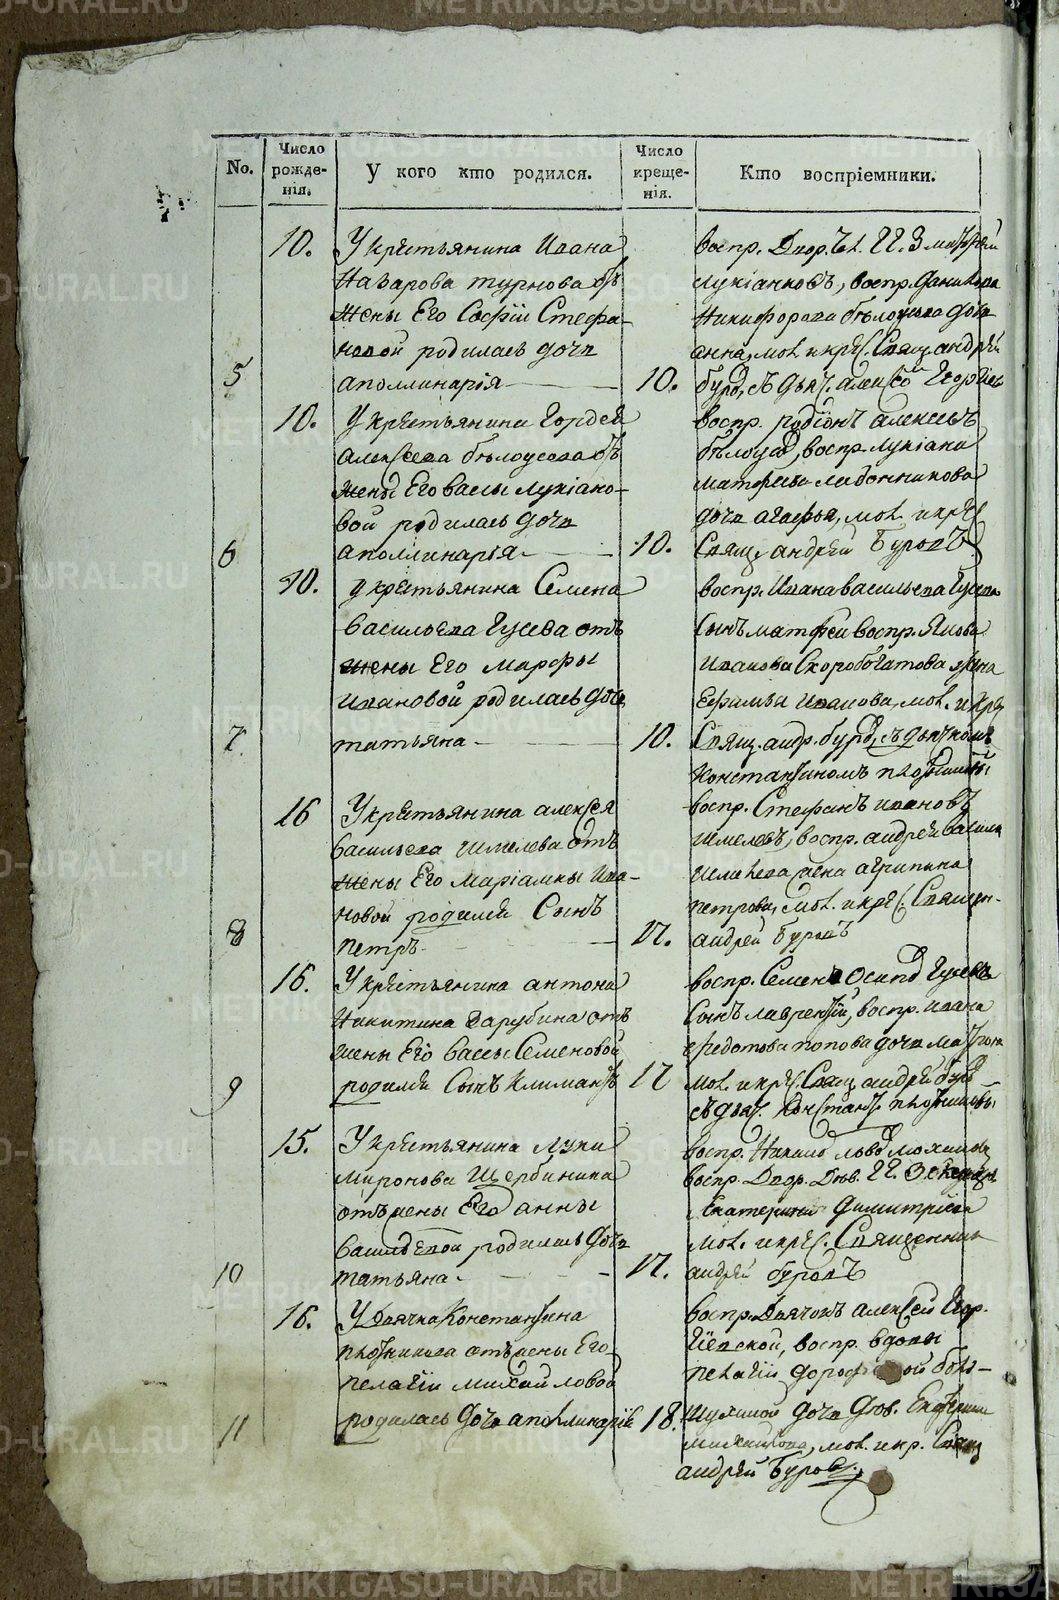 No.
Число рожде-нія.
У кого кто родился.
Число креще-нія.
Кто воспріемники.
10. У крестьянина Ивана
Назарова турнова отъ
жены Его Софіи Стефа-
новой родилась дочь
5 аполлинарія
10.
воспр. Двор.
Лукіанковъ, воспр. Данилова
Никифорова бѣлоусова дочь
анна, мол. и крес. Свящ. андрей
буровъ, съ дьяч. алексеем
10. У крестьянина Гордея
алексеева бѣлоусова отъ
жены Его Вассы Лукіано-
вой родилась дочь
6 аполлинарія
10.
воспр. родіонъ алексеевъ
бѣлоусовъ, воспр. Лукіана
матфеева ладонникова
дочь агафья, мол. и крес.
Свящ. андрей Буровъ
10. У крестьянина Семена
Васильева Гусева отъ
жены Его Марфы
Ивановой родилась дочь
7 татьяна
10.
воспр. Ивана васильева Гусева
сынъ матфей воспр. Якова
Иванова Скоробогатова жена
Ефимья Иванова, мол. и крес.
Свящ. андр. буровъ, съ дьячкомъ
Константиномъ плотниковымъ
16 У крестьянина алексея
Васильева Шмелева отъ
жены Его Маріамны Ива-
новой родился Сынъ
8 петръ
17.
воспр. Стефанъ Ивановъ
Шмелевъ, воспр. андрея васильева
Шмелева жена агрипина
петрова, мол. и крес. Священ.
андрей буровъ
16. У крестьянина антона
Никитина Зарубина отъ
жены Его Вассы Семеновой
9 родился Сынъ Климантъ
17
воспр. Семена Осипова Гусева
Сынъ лаврентій, воспр. Ивана
федотова попова дочь матрона
мол. и крес. Свящ. андрей буровъ
съ дьяч. Констант. плотниковым
15. У крестьянина Луки
миронова Щербинина
отъ жены Его анны
Васильевой родилась дочь
10 татьяна
17.
воспр.
воспр. Двор. Дѣв.
Екатерина Димитріева
мол. и крес. Священник
андрей буровъ
16. У Дьячка Константина
плотникова отъ жены Его
пелагіи михайловой
11 родилась дочь аполлинарія
18.
воспр. Дьячокъ алексей Егор.
Кіевской, воспр. вдовы
пелагіи
дочь дѣв.
михайлова, мол. и кр. Свящ
андрей Буровъ.
METRIKI.GASO-URAL.RU